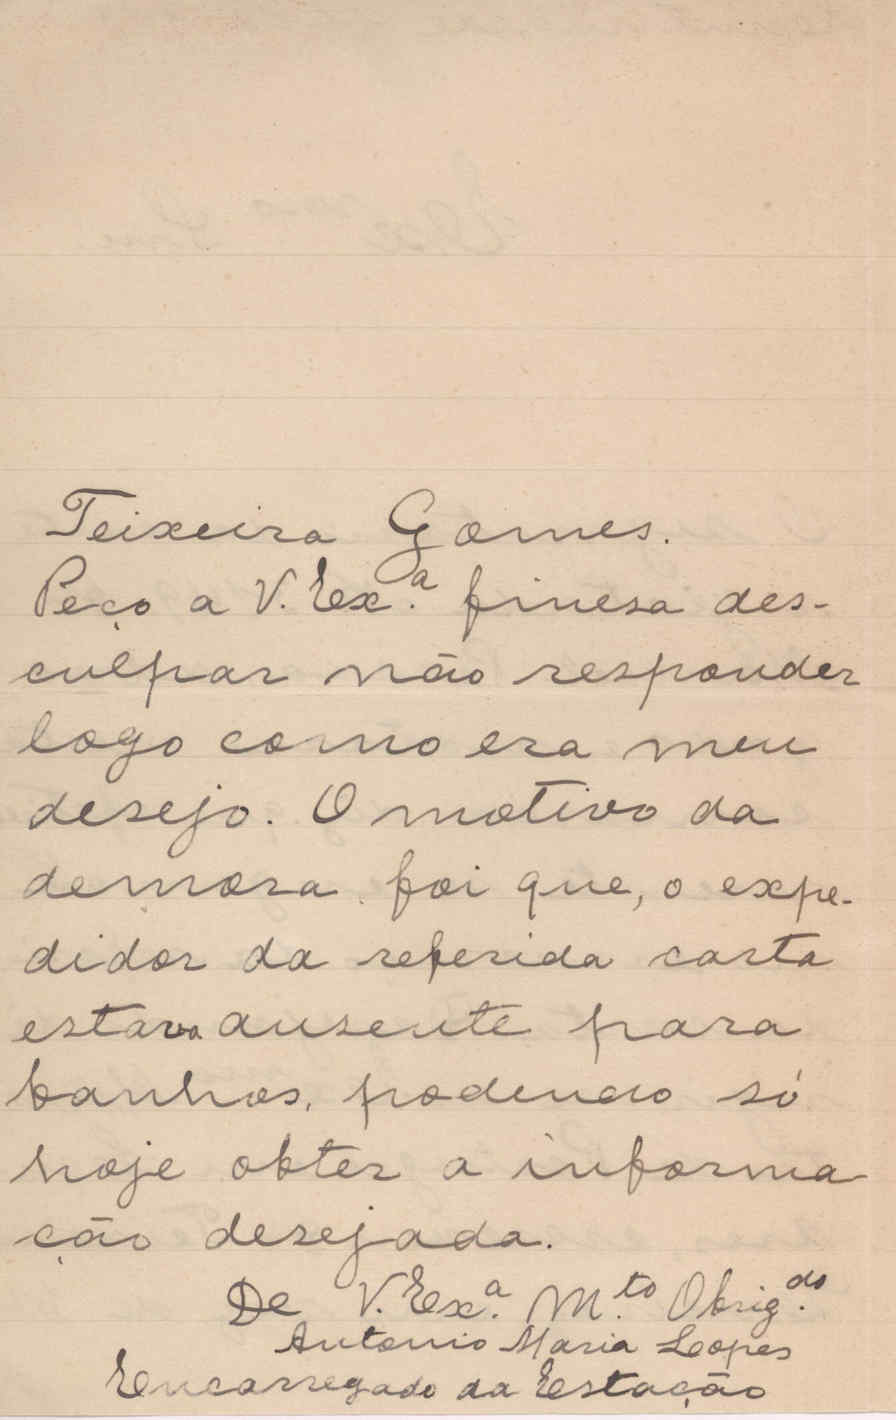 Teixeira Gomes.
Peço a V. Ex.ª finesa des-
culpar não responder
logo como era meu
desejo. O motivo da
demora foi que, o expe-
didor da referida carta
estava ausente para
banhos, podendo só
hoje obter a informa
ção desejada.
De V. Exª. M.to Obrig.do
Antonio Maria Lopes
Encarregado da Estação